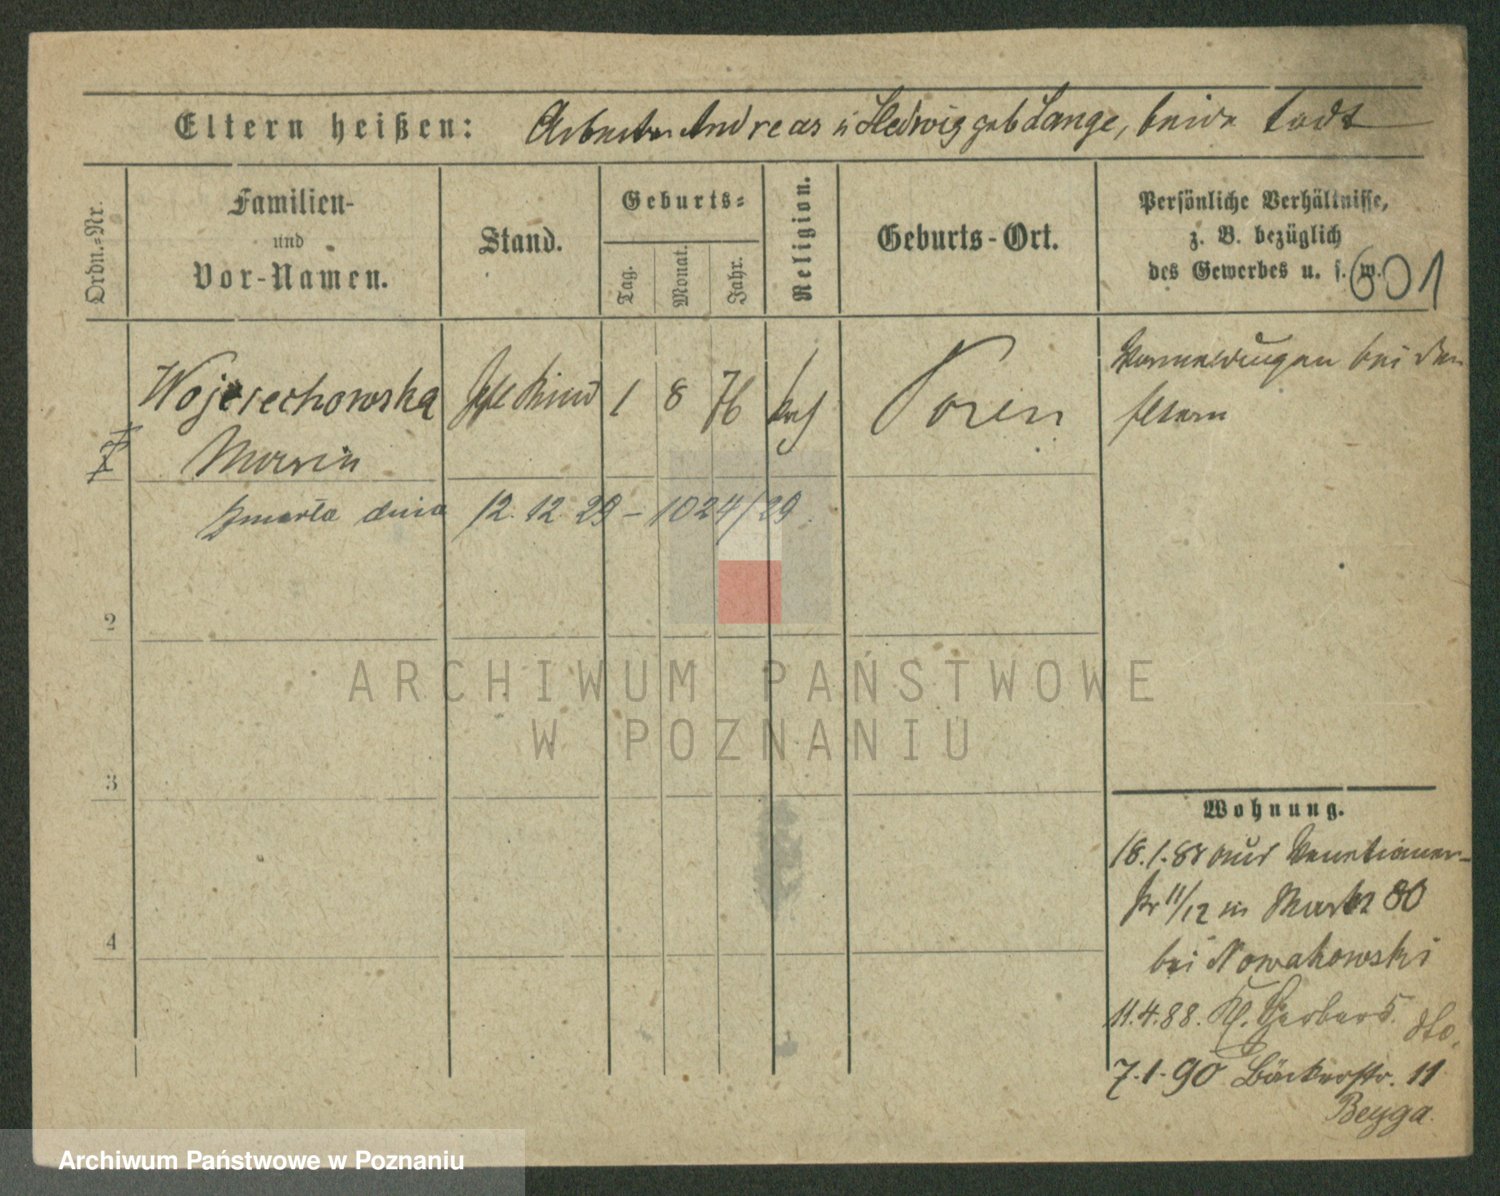 Eltern heißen: Arbeiter Andreas u Hedwig geb Lange, beide todt
Ordn.-Nr.
Familien-
und
Vor-Namen.
Stand.
Geburts-
Tag.
Monat.
Jahr.
Religion.
Geburts-Ort.
Persönliche Verhältnisse,
z. B. bezüglich
des Gewerbes u. s. w.
601
Wojciechowska 1 8 76 kath Posen
Marie
bei den
Eltern
zmarła dnia 12.12.29 – 1024/29
2
3
4
Wohnung.
18.1.88 aus Venetianer-
str 11/12 n Markt 80
bei Nowakowski
11.4.88. Kl. Gerberst. dto.
7.1.90 Bäckerstr. 11
Beyga
ARCHIWUM PAŃSTWOWE
W POZNANIU
Archiwum Państwowe w Poznaniu